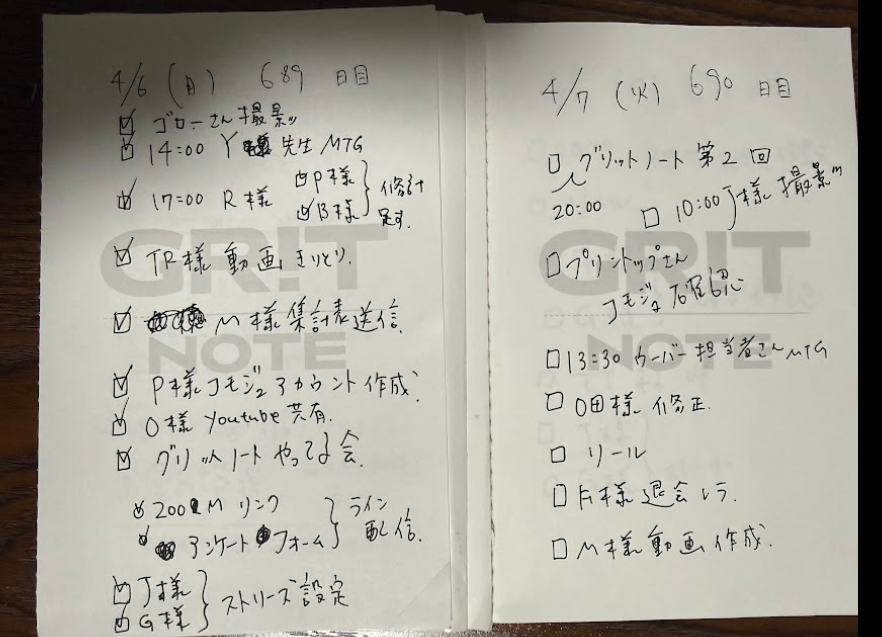 4/6 (月) 689 日目
ゴローさん撮影
14:00 Y 先生 MTG
17:00 R様 P様 B様
TR様 動画 きりとり.
M様集計表送信.
P様コモジュアカウント作成.
O様 Youtube共有.
グリットノート やってる会.
ZOOM リンク
アンケートフォーム
ライン
配信.
J様
G様
ストリーズ設定
GRIT
NOTE
4/7 (火) 690 日目
グリットノート 第2回
20:00
10:00 J様 撮影
プリントップさん
コモジュ確認
13:30 ウーバー担当者さん MTG
O田様 修正.
リール
様退会
M様動画作成.
GRIT
NOTE